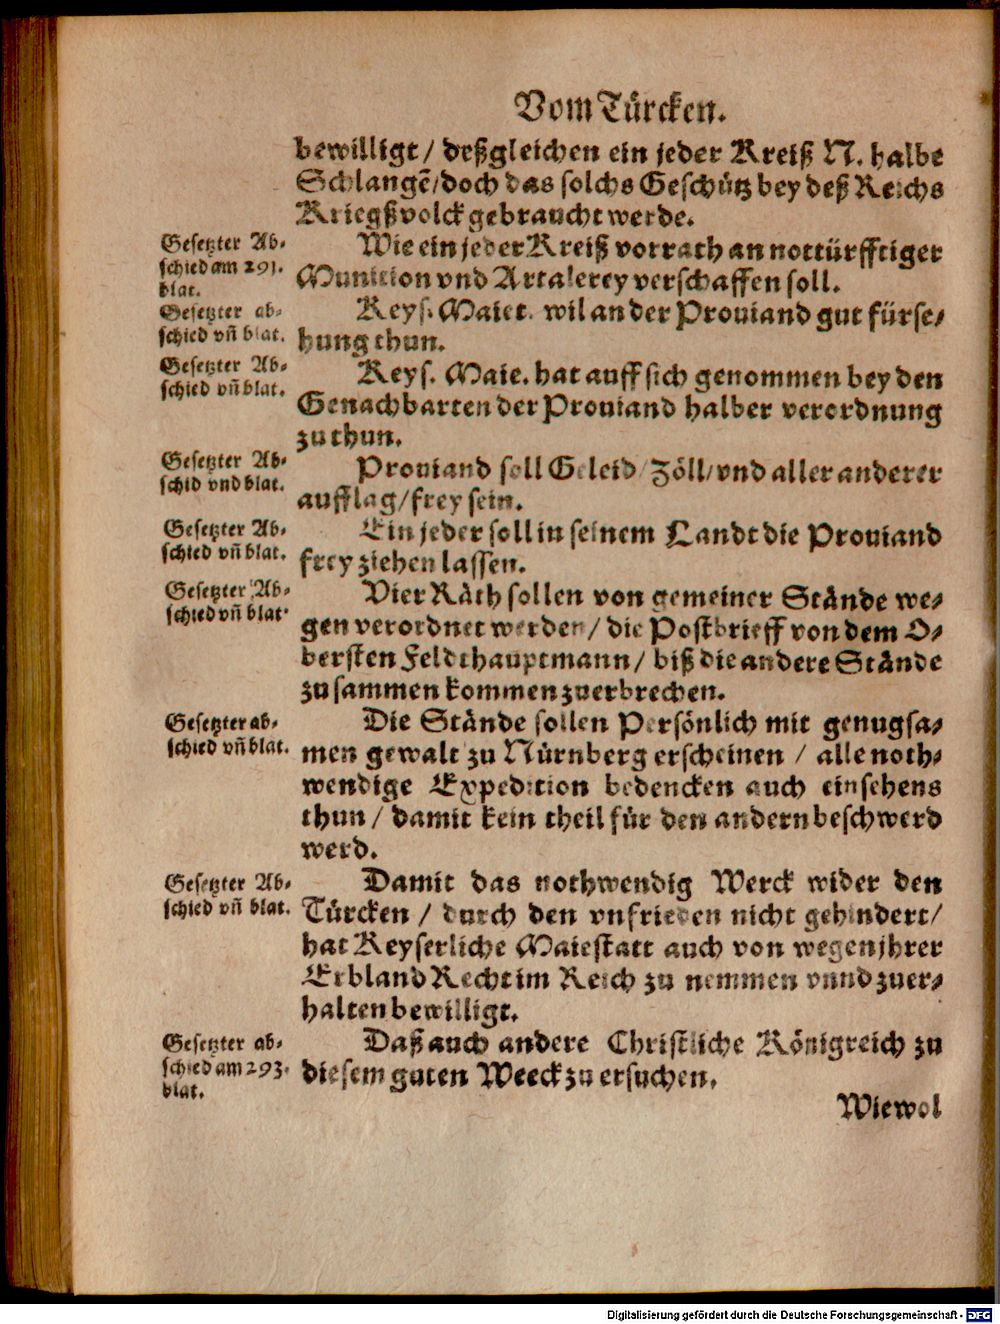 Vom Türcken.
bewilligt / deßgleichen ein jeder Kreiß N. halbe
Schlangē/doch das solchs Geschütz bey deß Reichs
Kriegßvolck gebraucht werde.
Gesetzter Ab-
schied am 291.
blat.
Wie ein jeder Kreiß vorrath an nottürfftiger
Munition vnd Artalerey verschaffen soll.
Gesetzter ab-
schied vñ blat.
Keys. Maiet. wil an der Prouiand gut fürse-
hung thun.
Gesetzter Ab-
schied vñ blat.
Keys. Maie. hat auff sich genommen bey den
Genachbarten der Prouiand halber verordnung
zu thun.
Gesetzter Ab-
schid vnd blat.
Prouiand soll Geleid/Zöll/vnd aller anderer
aufflag/frey sein.
Gesetzter Ab-
schied vñ blat.
Ein jeder soll in seinem Landt die Prouiand
frey ziehen lassen.
Gesetzter Ab-
schied vñ blat.
Vier Räth sollen von gemeiner Stände we-
gen verordnet werden / die Postbrieff von dem O-
bersten Feldthauptmann / biß die andere Stände
zusammen kommen zuerbrechen.
Gesetzter ab-
schied vñ blat.
Die Stände sollen Persönlich mit genugsa-
men gewalt zu Nürnberg erscheinen / alle noth-
wendige Expedition bedencken auch einsehens
thun / damit kein theil für den andern beschwerd
werd.
Gesetzter Ab-
schied vñ blat.
Damit das nothwendig Werck wider den
Türcken / durch den vnfrieden nicht gehindert/
hat Keyserliche Maiestatt auch von wegen jhrer
Erbland Recht im Reich zu nemmen vnnd zuer-
halten bewilligt.
Gesetzter ab-
schied am 293.
blat.
Daß auch andere Christliche Königreich zu
diesem guten Weeck zu ersuchen.
Wiewol
Digitalisierung gefördert durch die Deutsche Forschungsgemeinschaft - DFG